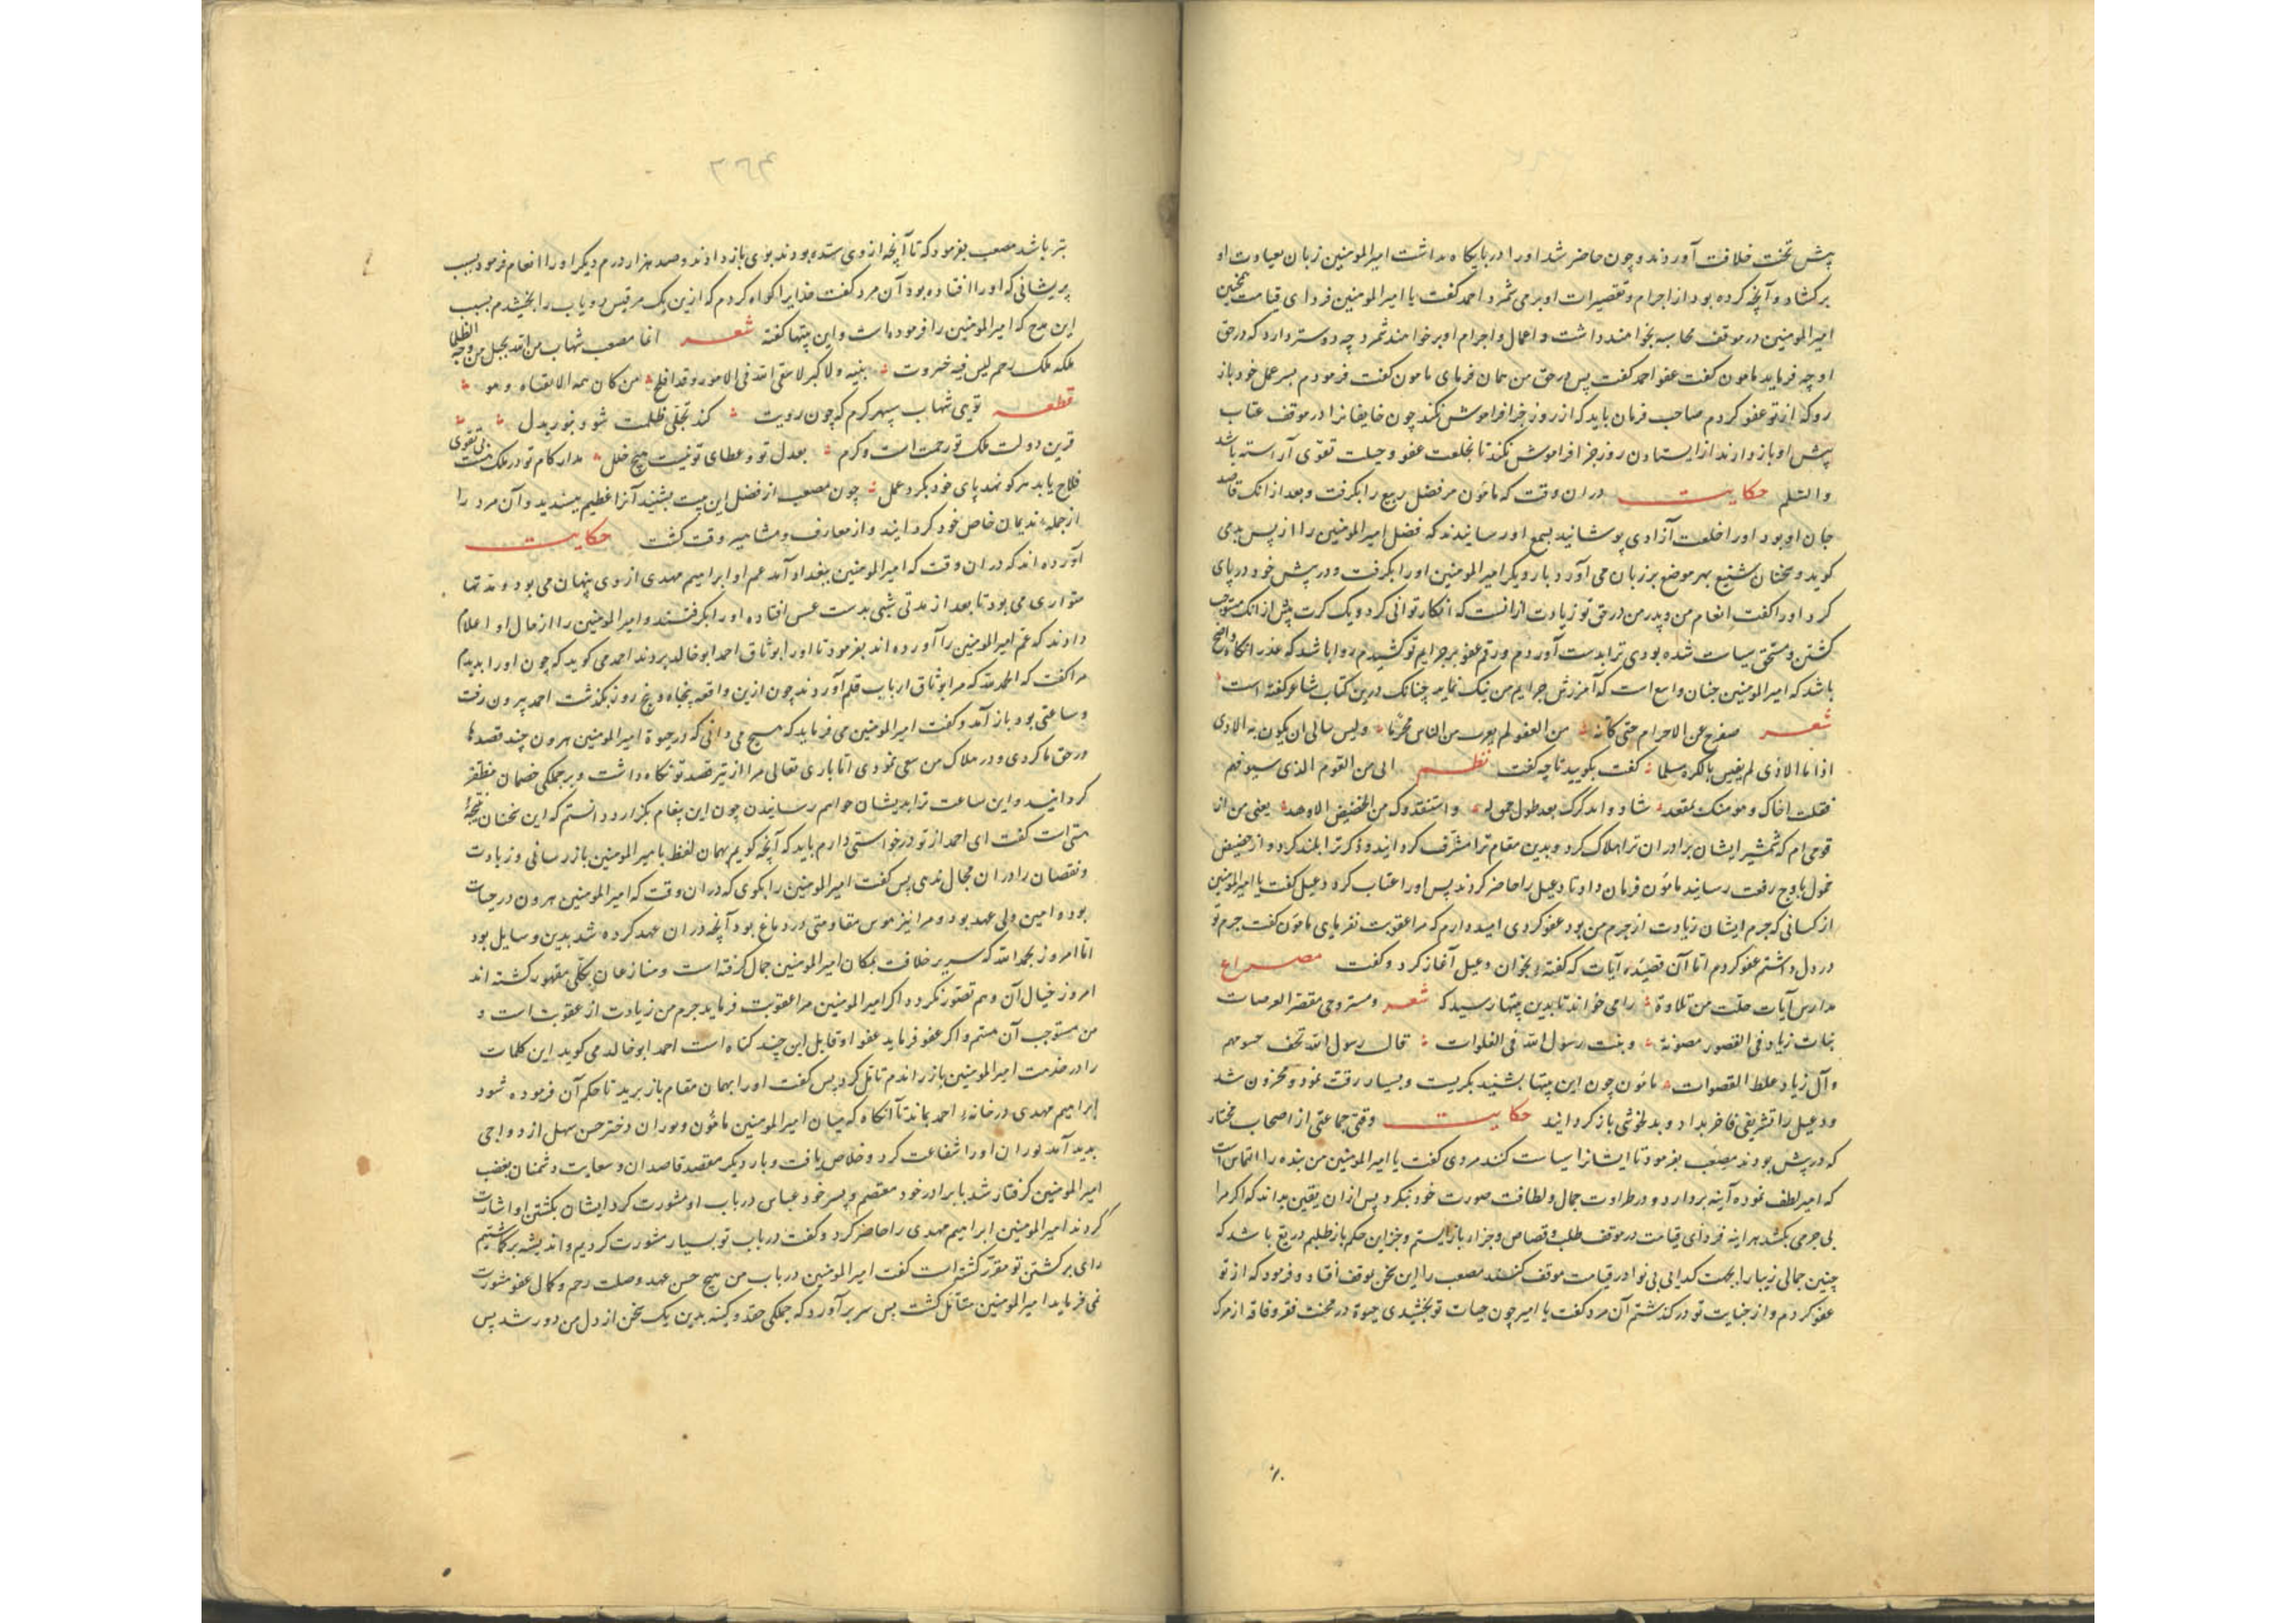 پیش تخت خلافت آوردند و چون حاضر شد او را در پایگاه بداشت امیر المومنین زبان بعیادت او
برکشاد و آنچه کرده بود از اجرام و تقصیرات او بر می شمرد احمد کفت یا امیر المومنین فردای قیامت همچنین
امیر المومنین در موقف محاسبه بخواهند داشت و اعمال و اجرام او بر خواهند شمرد چه دوستر دارد که در حق
او چه فرماید مامون کفت عفو احمد کفت پس در حق من همان فرمای مامون کفت فرمودم بسر عمل خود باز
رو که از تو عفو کردم صاحب فرمان باید که از روز جزا فراموش نکند چون خایفانرا در موقف عتاب
پیش او باز دارند از ایستادن روز جزا فراموش نکند تا بخلعت عفو و حیلت تقوی آراسته باشد
والسلم حکایت در ان وقت که مامون مر فضل ربیع را بکرفت و بعد از انک قاصد
جان او بود او را خلعت آزادی پوشانید بسمع او رسانیدند که فضل امیر المومنین را از پس بدمی
کوید و سخنان شنیع بهر موضع بر زبان می آورد بار دیکر امیر المومنین او را بکرفت و در پیش خود در پای
کرد او را کفت انعام من و پدر من در حق تو زیادت از انست که انکار توانی کرد و یک کرت پیش از انک مستوجب
کشتن و مستحق سیاست شده بودی ترا بدست آوردم و رقم عفو بر جرایم تو کشیدم روا باشد که عذر انکاه واضح
باشد که امیر المومنین چنان واسع است که آمرزش جرایم من نیک نماید چنانک درین کتاب شاعر کفته است
شعر صفوح عن الاجرام حتی کانه من العفو لم یعرف من الناس مجرما ولیس یبالی ان یکون به الاذی
اذا ما الاذی لم یغش بالکره مسلما کفت بکویید تا چه کفت نظم انی من القوم الذی سیوفهم
قتلت اخاک و منک بمقعد شادوا بذکرک بعد طول خموله واستنقذوک من الحضیض الاوهد یعنی من از
قومی ام که شمشیر ایشان برادران ترا هلاک کرد و بدین مقام ترا مشرف کردانید و ذکر ترا بلند کرد و از حضیض
خمول باوج رفعت رسانید مامون فرمان داد تا دعبل را حاضر کردند پس او را عتاب کرد دعبل کفت یا امیر المومنین
از کسانی که جرم ایشان زیادت از جرم من بود عفو کردی امید دارم که مرا عقوبت نفرمای مامون کفت جرم تو
در دل داشتم عفو کردم اما آن قصیده آیات که کفته بخوان دعبل آغاز کرد و کفت مصراع
مدارس آیات خلت من تلاوة را می خواند تا بدین بیتها رسید که شعر و منزل وحی مقفر العرصات
بنات زیاد فی القصور مصونة وبنت رسول الله فی الفلوات فآل رسول الله نحف جسومهم
وآل زیاد غلظ القصرات مامون چون این بیتها بشنید بکریست و بسیار رقت نمود و محزون شد
و دعبل را تشریفی فاخر بداد و بدلخوشی باز کردانید حکایت وقتی جماعتی از اصحاب مختار
که در پیش بودند مصعب بفرمود تا ایشانرا سیاست کنند مردی کفت یا امیر المومنین من بنده را التماس است
که امیر لطف نموده آینه بردارد و در طراوت جمال و لطافت صورت خود نیکرد پس از ان یقین بداند که اکر مرا
بی جرمی بکشد هر اینه فردای قیامت در موقف طلب و قصاص و جزاء باز ایستم و جز این حکم باز طلبم دریغ باشد که
چنین جمالی زیبا را بجهت کدایی بی نوا در قیامت موقف کنند مصعب را این سخن بموقف افتاد و فرمود که از تو
عفو کردم و از جنایت تو درکذشتم آن مرد کفت یا امیر چون حیات تو بخشیدی حیوة در محنت فقر و فاقه از مرک
بتر باشد مصعب بفرمود که تا آنچه از وی ستده بودند بوی باز دادند و صد هزار درم دیکر او را انعام فرمود بسبب
پریشانی که او را افتاده بود آن مرد کفت خدایرا کواه کردم که ازین یک مر قیس رقیات را بخشیدم بسبب
این مدح که امیر المومنین را فرموده است و این بیتها کفته شعر انما مصعب شهاب من الله تجلی من وجهه الظلما
ملکه ملک رحم لیس فیه جبروت منه ولا کبر لا یتقی الله فی الامور وقد افلح من کان همه الاتقاء وهو
قطعه توی شهاب سپهر کرم که چون رویت کند تجلی ظلمت شود بنور بدل
قرین دولت ملک تو رحمت است و کرم بعدل تو و عطای تو نیست هیچ خلل مدار کام تو در ملک هست بی تقوی
فلاح یابد هر کو نهد پای خود بکرد عمل چون مصعب از فضل این بیت بشنید آنرا عظیم پسندید و آن مرد را
از جمله ندیمان خاص خود کردانید و از معارف و مشاهیر وقت کشت حکایت
آورده اند که در ان وقت که امیر المومنین ببغداد آمد عم او ابراهیم مهدی از وی پنهان می بود و مدتها
متواری می بود تا بعد از مدتی شبی بدست عسس افتاده او را بکرفتند و امیر المومنین را از حال او اعلام
دادند که عم امیر المومنین را آورده اند بفرمود تا او را بوثاق احمد ابو خالد بردند احمد می کوید که چون او را بدیدم
مرا کفت که الحمد لله که مرا بوثاق ارباب قلم آوردند چون ازین واقعه پنجاه و پنج روز بکذشت احمد بیرون رفت
و ساعتی بود باز آمد و کفت امیر المومنین می فرماید که هیچ می دانی که در حیوة امیر المومنین هرون چند قصدها
در حق ما کردی و در هلاک من سعی نمودی اما باری تعالی مرا از تیر قصد تو نکاه داشت و بر جملکی خصمان مظفر
کردانید و این ساعت ترا بدیشان خواهم رسانیدن چون این پیغام بکزارد دانستم که این سخنان نتیجه
متی است کفت ای احمد از تو درخواستی دارم باید که آنچه کویم بهمان لفظ با میر المومنین باز رسانی و زیادت
و نقصان را در ان مجال ندهی پس کفت امیر المومنین را بکوی که در ان وقت که امیر المومنین هرون در حیات
بود و امین ولی عهد بود و مرا نیز هوس مقاومتی در دماغ بود آنچه در ان عهد کرده شد بدین وسایل بود
اما امروز بحمد الله که سریر خلافت بمکان امیر المومنین جمال کرفته است و منازعان بکلی مقهور کشته اند
امروز خیال آن وهم تصور نکردد اکر امیر المومنین مرا عقوبت فرماید جرم من زیادت از عقوبت است و
من مستوجب آن هستم و اکر عفو فرماید عفو او قابل این چند کناه است احمد ابو خالد می کوید این کلمات
را در خدمت امیر المومنین باز راندم تامل کرد پس کفت او را بهمان مقام باز برید تا حکم آن فرموده شود
ابراهیم مهدی در خانه احمد بماند تا آنکاه که میان امیر المومنین مامون و بوران دختر حسن سهل ازدواجی
پدید آمد بوران او را شفاعت کرد و خلاص یافت و بار دیکر بقصد قاصدان و سعایت دشمنان بغضب
امیر المومنین کرفتار شد با برادر خود معتصم و پسر خود عباس در باب او مشورت کرد ایشان بکشتن او اشارت
کردند امیر المومنین ابراهیم مهدی را حاضر کرد و کفت در باب تو بسیار مشورت کردیم و اندیشه بر کماشتیم
رای بر کشتن تو مقرر کشته است کفت امیر المومنین در باب من هیچ حسن عهد و صلت رحم و کمال عفو مشورت
نمی فرماید امیر المومنین متامل کشت پس سر بر آورد که جملکی حقد و کینه بدین یک سخن از دل من دور شد پس